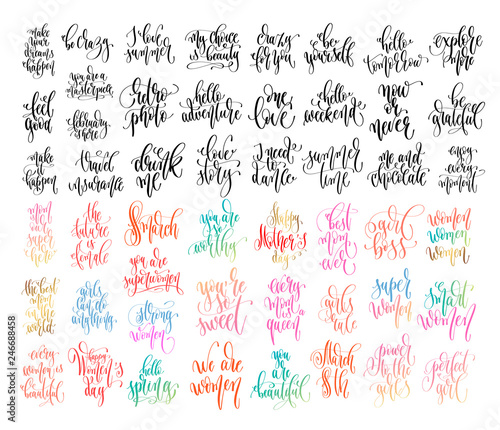 make
your
dreams
happen
be crazy
I love
summer
my choice
is beauty
crazy
for you
be
yourself
hello
tomorrow
explore
more
feel
good
you are a
masterpiece
february
is here
retro
photo
hello
adventure
one
love
hello
weekend
now
or
never
be
grateful
make
it
happen
travel
insurance
drink
me
love
story
I need
to
dance
summer
time
me and
chocolate
enjoy
every
moment
the
future
is
female
8 march
you are
superwomen
you are
so
worthy
Happy
Mother's
day
best
mom
ever
girl
boss
women
women
women
the best
mom
in the
world
girls
can do
anything
strong
women
you're
so
sweet
every
mom
is a
queen
girls
rule
super
women
smart
women
every
women is
beautiful
Happy
Women's
day
hello
spring
we are
women
you
are
beautiful
March
8th
power
to the
girls
perfect
girl
Adobe Stock | #246688458